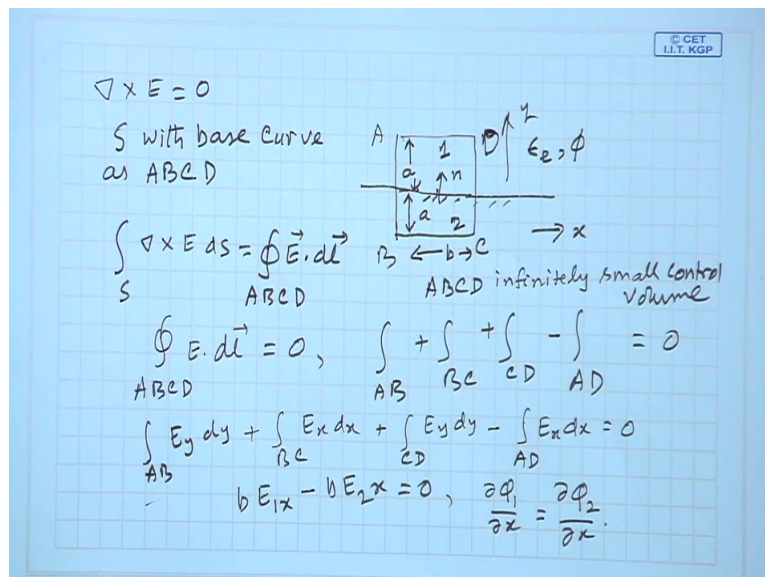 © CET
I.I.T. KGP
∇ × E = 0
S with base curve
as ABCD
A 1 D y ϵe, φ
a n
a 2
B ← b → C → x
∫S ∇ × E ds = ∮ABCD E⃗. dl⃗
ABCD infinitely small control
volume
∮ABCD E. dl⃗ = 0, ∫AB + ∫BC + ∫CD - ∫AD = 0
∫AB Ey dy + ∫BC Ex dx + ∫CD Ey dy - ∫AD Ex dx = 0
b E1x - b E2x = 0, ∂φ1/∂x = ∂φ2/∂x.